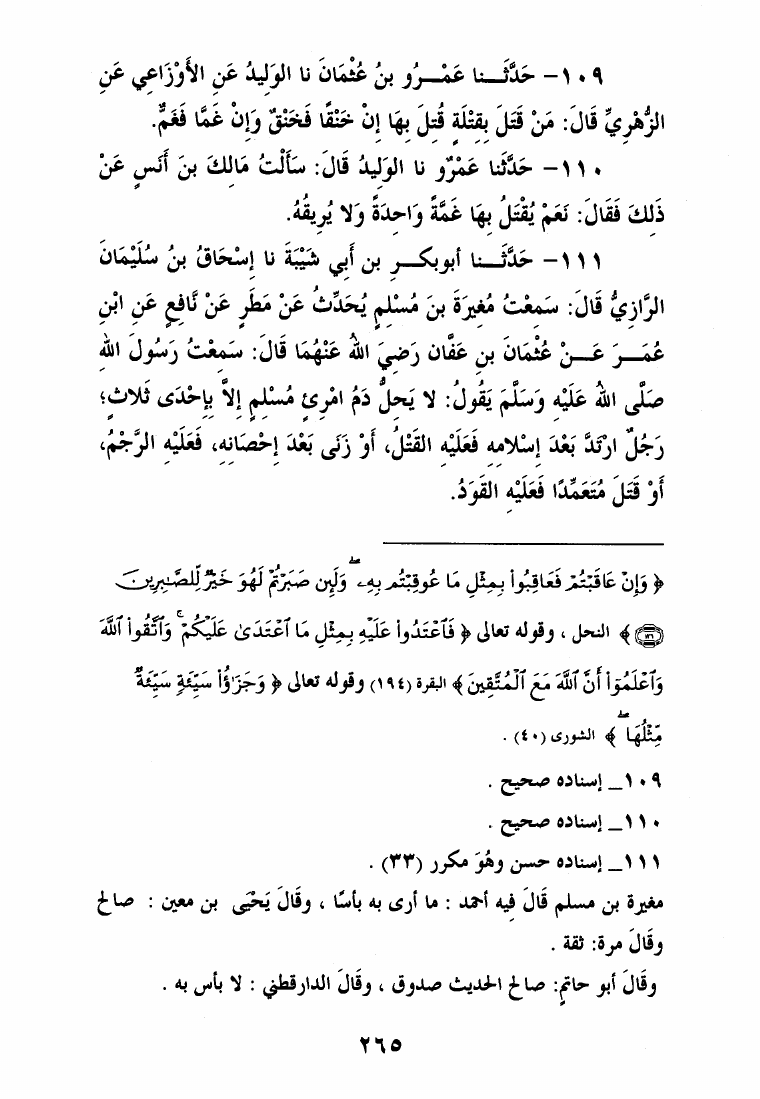 ١٠٩- حَدَّثَـــنا عَمْـــرُو بنُ عُثْمَانَ نا الوَلِيدُ عَنِ الأَوْزَاعِي عَنِ
الزُّهْرِيِّ قَالَ: مَنْ قَتَلَ بِقِتْلَةٍ قُتِلَ بِهَا إِنْ خَنْقًا فَخَنْقٌ وَإِنْ غَمًّا فَغَمٌّ.
١١٠- حَدَّثَنا عَمْرٌو نا الوَلِيدُ قَالَ: سَأَلْتُ مَالِكَ بنَ أَنَسٍ عَنْ
ذَلِكَ فَقَالَ: نَعَمْ يُقْتَلُ بِهَا غَمَّةً وَاحِدَةً وَلا يُرِيقُهُ.
١١١- حَدَّثَـــنا أبوبكـــر بن أَبِي شَيْبَةَ نا إِسْحَاقُ بنُ سُلَيْمَانَ
الرَّازِيُّ قَالَ: سَمِعْتُ مُغِيرَةَ بنَ مُسْلِمٍ يُحَدِّثُ عَنْ مَطَرٍ عَنْ نَّافِعٍ عَنِ ابْنِ
عُمَـــرَ عَـــنْ عُثْمَانَ بنِ عَفَّان رَضِيَ اللهُ عَنْهُمَا قَالَ: سَمِعْتُ رَسُولَ اللهِ
صَلَّى اللهُ عَلَيْهِ وَسَلَّمَ يَقُولُ: لا يَحِلُّ دَمُ امْرِئٍ مُسْلِمٍ إِلاَّ بِإِحْدَى ثَلاثٍ؛
رَجُلٌ ارْتَدَّ بَعْدَ إِسْلامِهِ فَعَلَيْهِ القَتْلُ، أَوْ زَنَى بَعْدَ إِحْصَانِهِ، فَعَلَيْهِ الرَّجْمُ،
أَوْ قَتَلَ مُتَعَمِّدًا فَعَلَيْهِ القَوَدُ.
﴿ وَإِنْ عَاقَبْتُمْ فَعَاقِبُوا۟ بِمِثْلِ مَا عُوقِبْتُم بِهِۦ ۖ وَلَئِن صَبَرْتُمْ لَهُوَ خَيْرٌ لِّلصَّٰبِرِينَ
١٢٦ ﴾ النحل ، وقوله تعالى ﴿ فَٱعْتَدُوا۟ عَلَيْهِ بِمِثْلِ مَا ٱعْتَدَىٰ عَلَيْكُمْ ۚ وَٱتَّقُوا۟ ٱللَّهَ
وَٱعْلَمُوٓا۟ أَنَّ ٱللَّهَ مَعَ ٱلْمُتَّقِينَ ﴾ البقرة (١٩٤) وقوله تعالى ﴿ وَجَزَٰٓؤُا۟ سَيِّئَةٍ سَيِّئَةٌ
مِّثْلُهَا ۖ ﴾ الشورى (٤٠) .
١٠٩_ إسناده صحيح .
١١٠_ إسناده صحيح .
١١١_ إسناده حسن وهُوَ مكرر (٣٣) .
مغيرة بن مسلم قَالَ فيه أحمد : ما أرى به بأسًا ، وقَالَ يَحْيَى بن معين : صالح
وقَالَ مرة: ثقة .
وقَالَ أبو حاتِم: صالح الحديث صدوق ، وقَالَ الدارقطني : لا بأس به .
٢٦٥